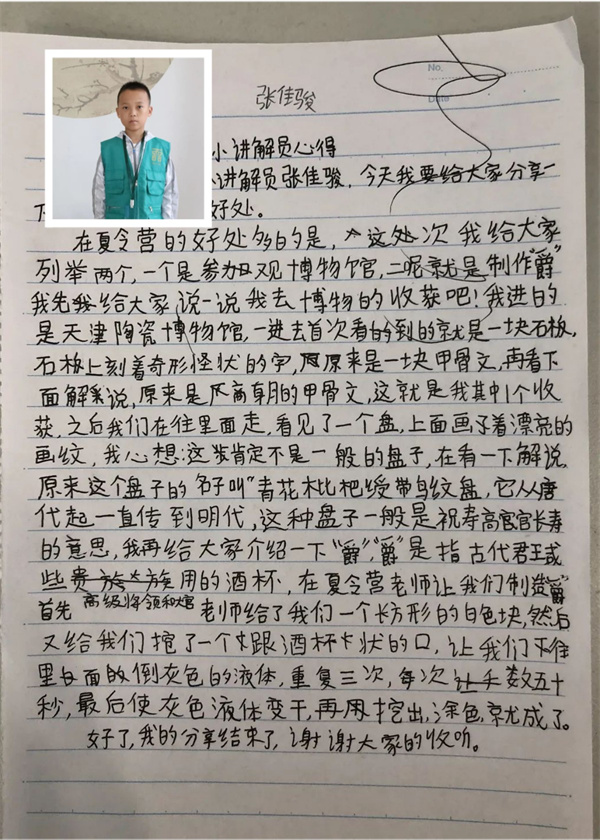 No.
Date
张佳骏
小讲解员心得
小讲解员张佳骏，今天我要给大家分享一
好处。
在夏令营的好处多的是，这次我给大家
列举两个，一个是参加观博物馆，二呢就是制作“爵”
我先给大家说一说我去博物的收获吧！我进的
是天津陶瓷博物馆，一进去首次看的到的就是一块石板，
石板上刻着奇形怪状的字，原来是一块甲骨文，再看下
面解说，原来是商朝的甲骨文，这就是我其中1个收
获，之后我们在往里面走，看见了一个盘，上面画了着漂亮的
画纹，我心想：这肯定不是一般的盘子，在看一下解说，
原来这个盘子的名子叫“青花枇杷绶带鸟纹盘，它从唐
代起一直传到明代，这种盘子一般是祝寿高官官长寿
的意思，我再给大家介绍一下“爵”，“爵”是指古代君王或
些贵族大族用的酒杯，在夏令营老师让我们制造“爵”
高级将领和大官
首先老师给了我们一个长方形的白色块，然后
又给我们挖了一个跟酒杯状的口，让我们往
里面倒灰色的液体，重复三次，每次让手数五十
秒，最后使灰色液体变干，再用挖出，涂色就成了。
好了，我的分享结束了，谢谢大家的收听。